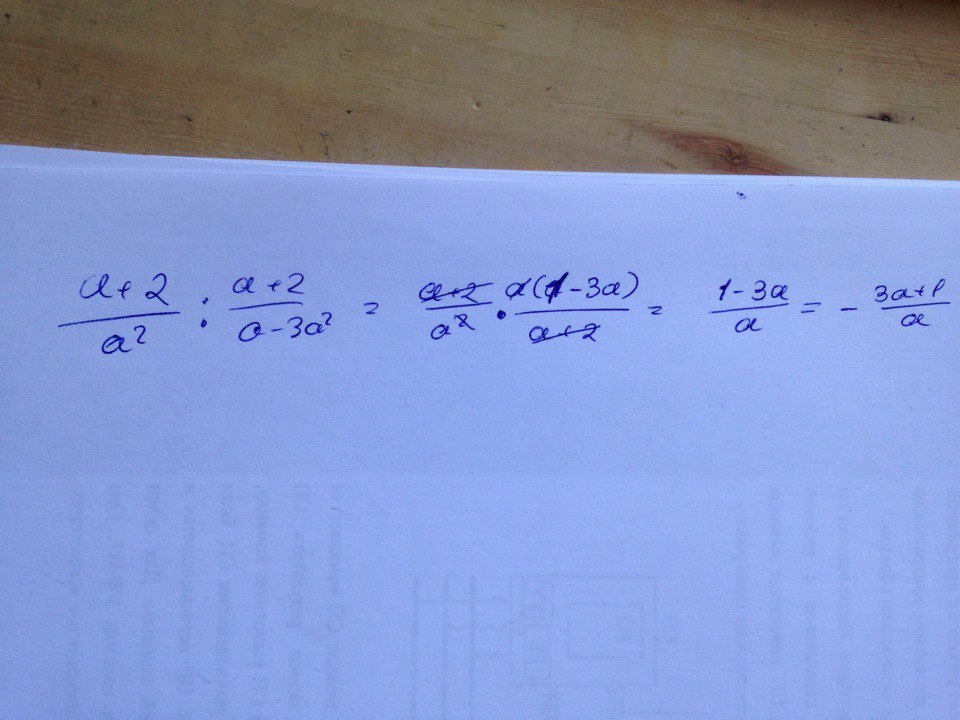 (a+2)/a² : (a+2)/(a-3a²) = (a+2)/a² · a(1-3a)/(a+2) = (1-3a)/a = - (3a+1)/a